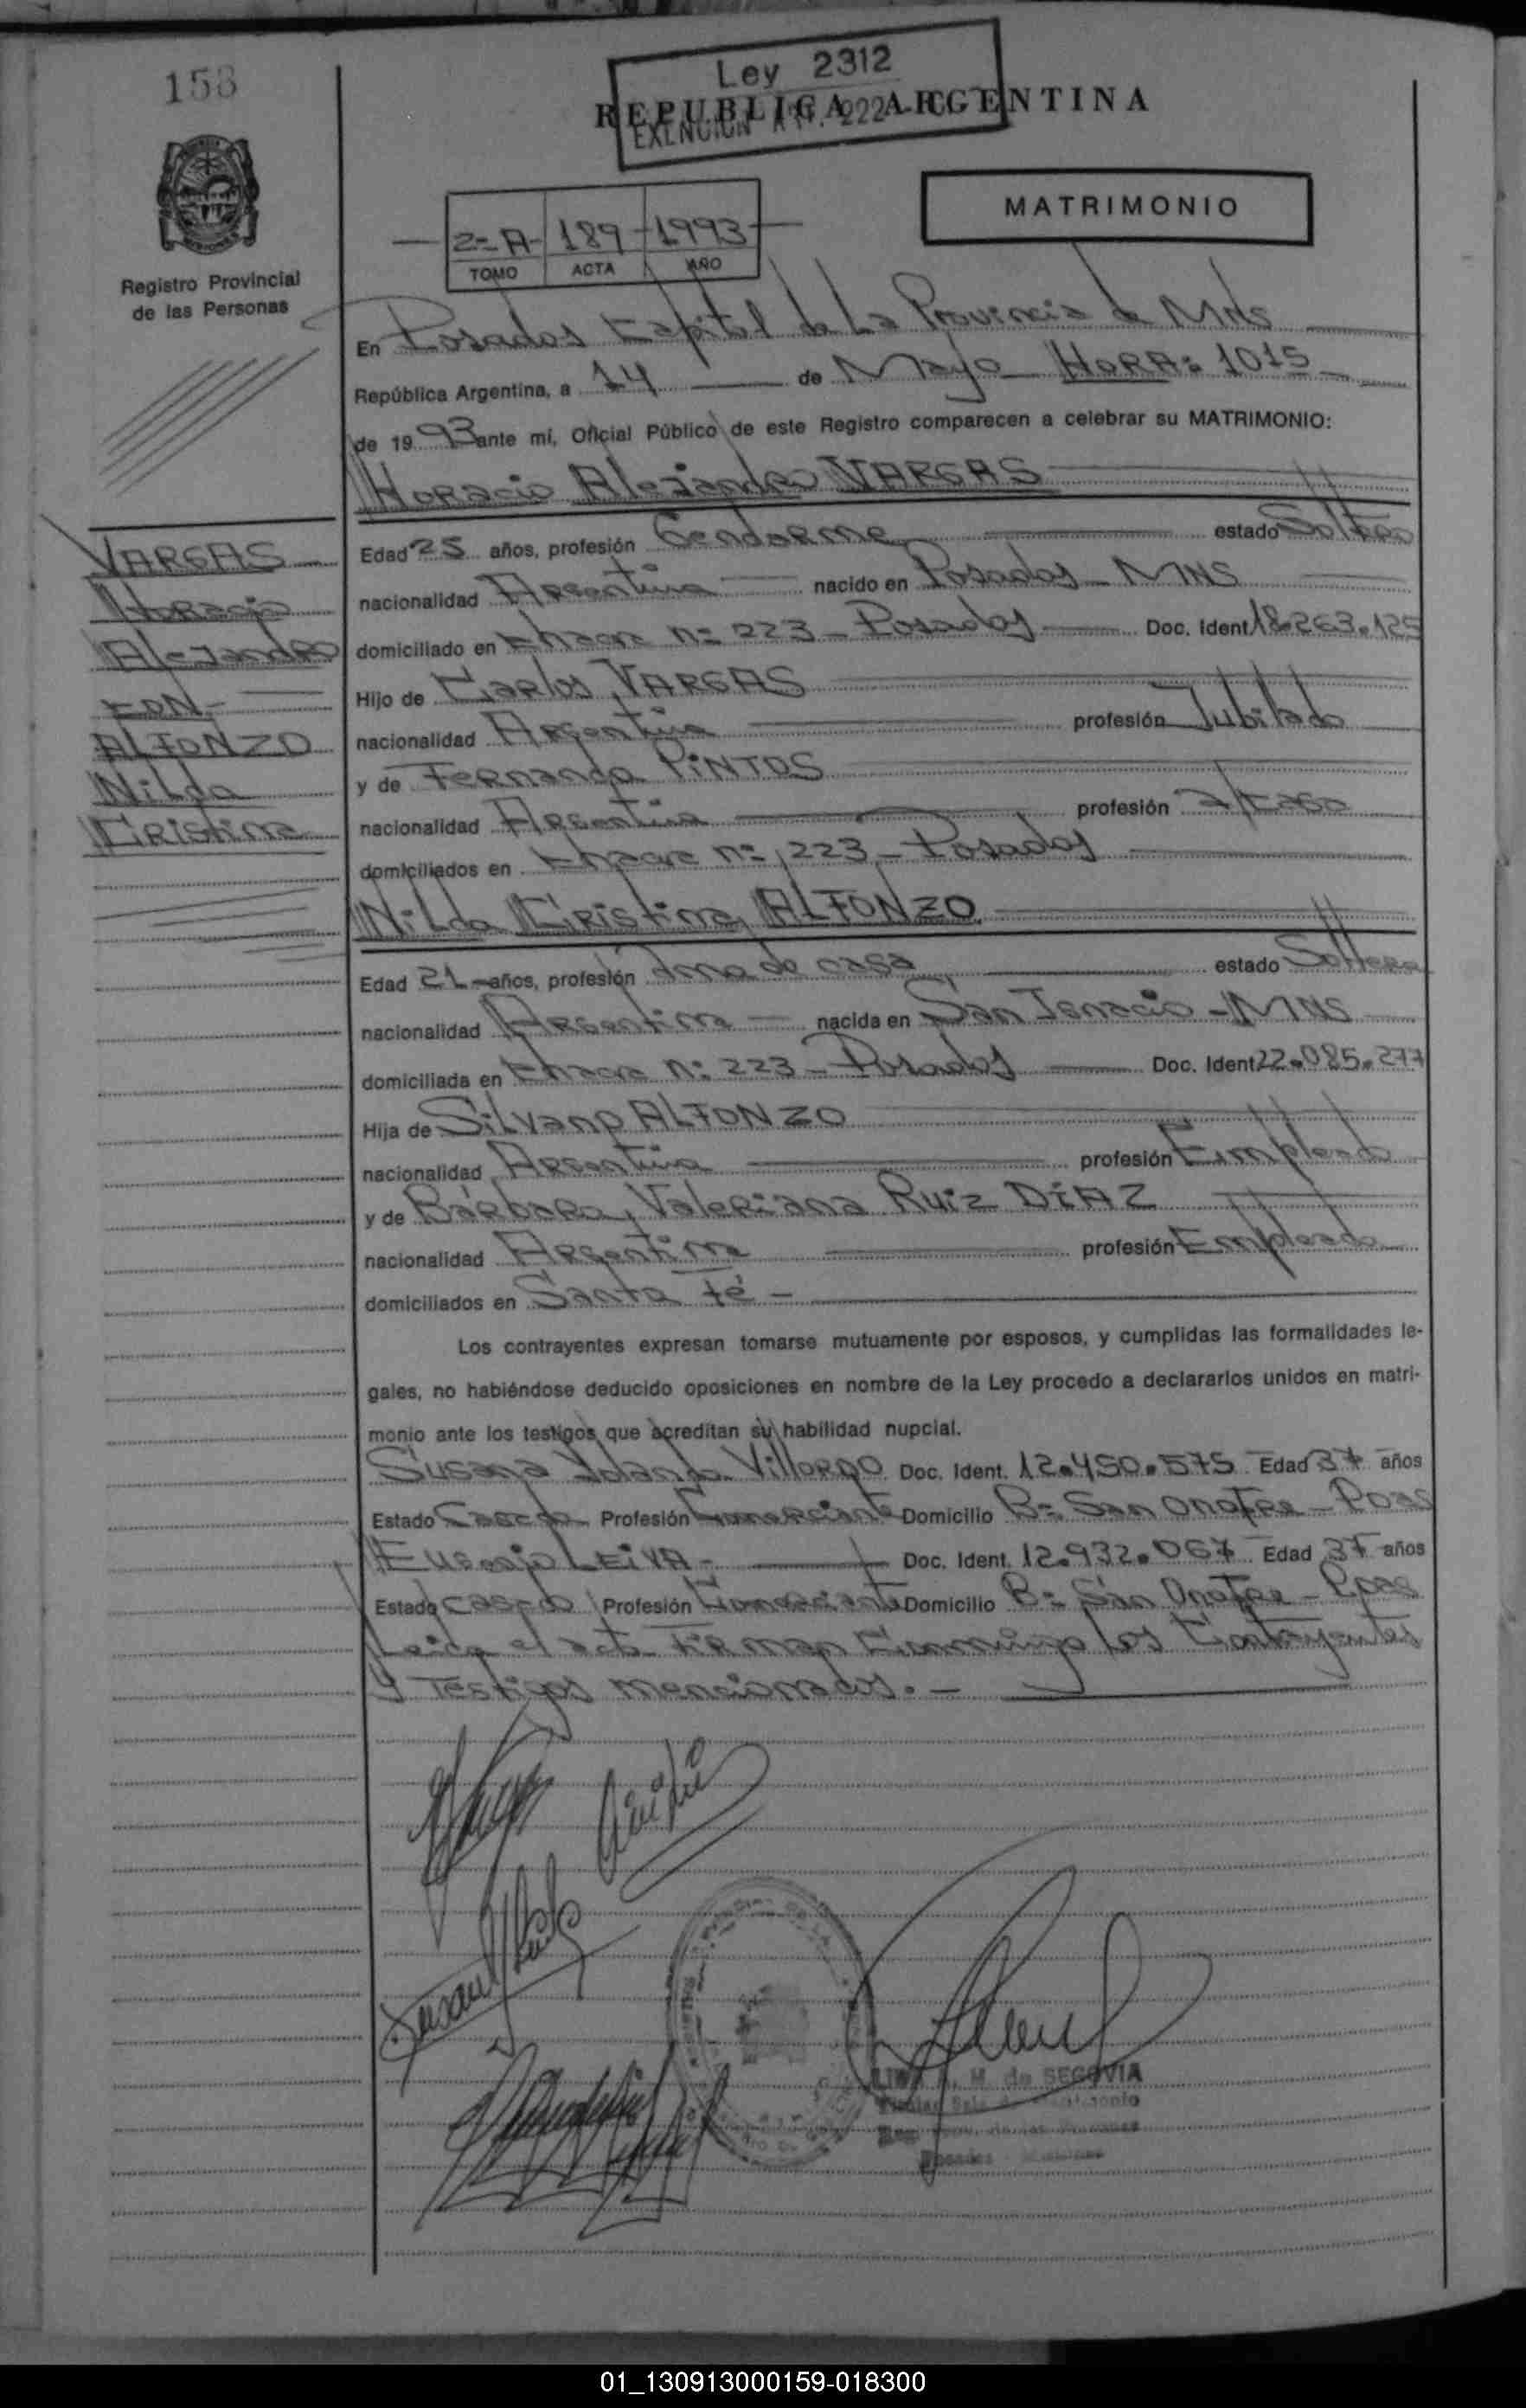 158
Ley 2312
EXENCION ART. 222
REPUBLICA ARGENTINA
MATRIMONIO
2= A- 189 - 1993
TOMO ACTA AÑO
Registro Provincial
de las Personas
En Posadas Capital de La Provincia de Mnes
República Argentina, a 14 de Mayo HORA: 1015
de 1993 ante mí, Oficial Público de este Registro comparecen a celebrar su MATRIMONIO:
Horacio Alejandro VARGAS
VARGAS
Horacio
Alejandro
CON.-
ALFONZO
Nilda
Cristina
Edad 25 años, profesión Gendarme estado Soltero
nacionalidad Argentina nacido en Posadas - MNS
domiciliado en Chacra n= 223 - Posadas Doc. Ident. 18.263.125
Hijo de Carlos VARGAS
nacionalidad Argentina profesión Jubilado
y de Fernanda PINTOS
nacionalidad Argentina profesión
domiciliados en Chacra n= 223 - Posadas
Nilda Cristina ALFONZO
Edad 21 años, profesión Ama de casa estado Soltera
nacionalidad Argentina nacida en San Ignacio - MNS
domiciliada en Chacra n: 223 - Posadas Doc. Ident. 22.085.277
Hija de Silvano ALFONZO
nacionalidad Argentina profesión Empleado
y de Bárbara Valeriana Ruiz DÍAZ
nacionalidad Argentina profesión Empleada
domiciliados en Santa Fé -
Los contrayentes expresan tomarse mutuamente por esposos, y cumplidas las formalidades le-
gales, no habiéndose deducido oposiciones en nombre de la Ley procedo a declararlos unidos en matri-
monio ante los testigos que acreditan su habilidad nupcial.
Susana Yolanda Doc. Ident. 12.450.575 Edad 37 años
Estado Casada Profesión Comerciante Domicilio B= San Onofre - Pdas
Eugenio LEIVA - Doc. Ident. 12.932.067 Edad 37 años
Estado Casado Profesión Comerciante Domicilio B= San Onofre - Pdas
Leida el acta Firman Conmigo Los Contrayentes
y Testigos mencionados. -
M. de SEGOVIA
01_130913000159-018300